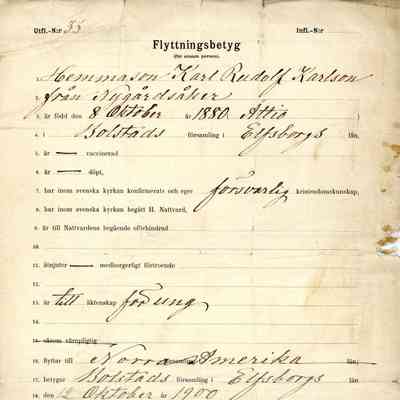 Utfl.-N:r 35 Infl.-N:r
Flyttningsbetyg
(för ensam person).
1. Hemmason Karl Rudolf Karlson
2. från Nygårdsåker
3. är född den 8 Oktober år 1880. Åttio
4. i Bolstads församling i Elfsborgs län,
5. är — vaccinerad
6. är — döpt,
7. har inom svenska kyrkan konfirmerats och eger försvarlig kristendomskunskap,
8. har inom svenska kyrkan begått H. Nattvard,
9. är till Nattvardens begående oförhindrad
10.
11.
12. åtnjuter — medborgerligt förtroende
13.
13. är till äktenskap för ung
14.
15. såsom värnpligtig
16. flyttar till Norra Amerika län;
17. betygar Bolstads församling i Elfsborgs län
18. den 12 Oktober år 1900